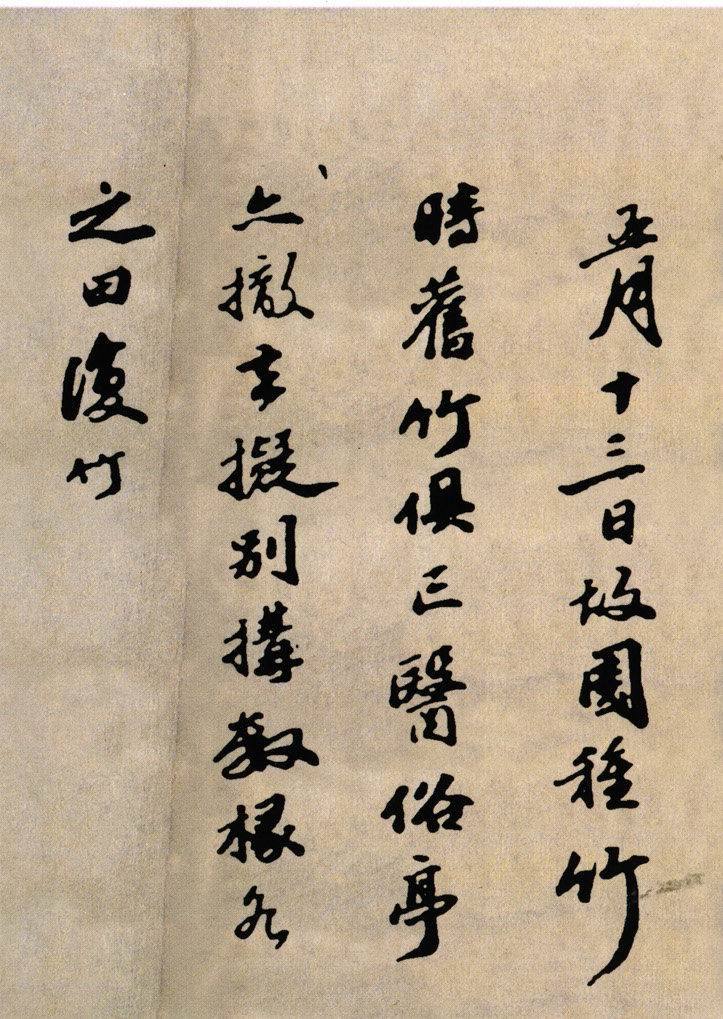 五月十三日故園種竹
時舊竹俱亡醫俗亭
亦撤去擬別搆數椽名
之曰復竹